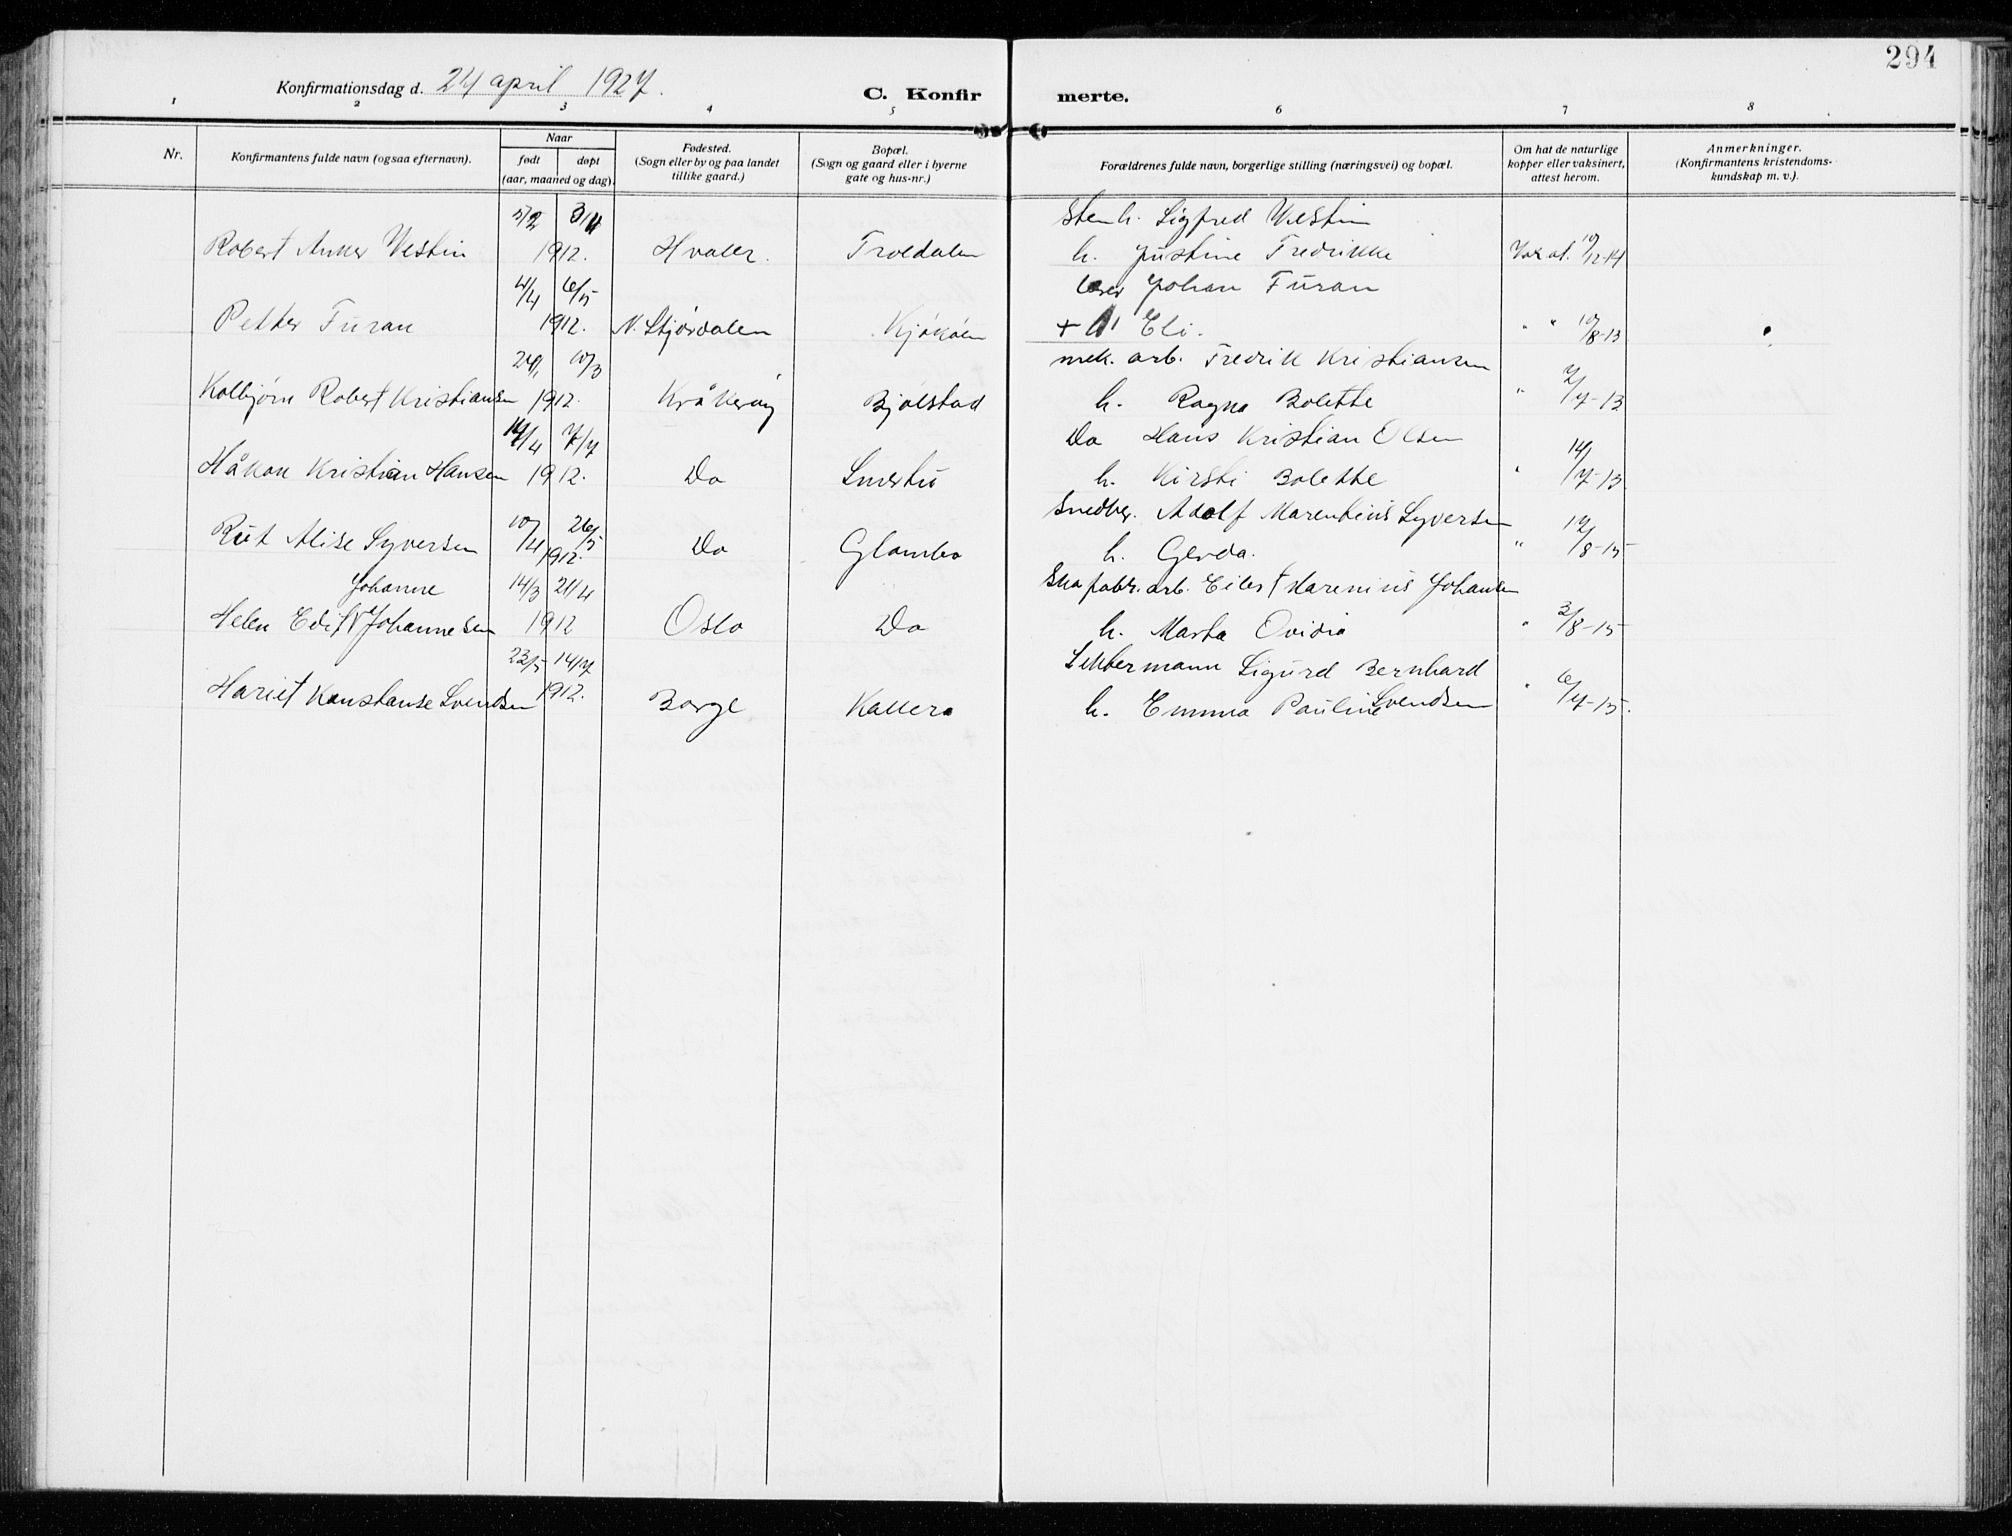 294
Konfirmationsdag d. 24 april 1927.
C. Konfirmerte.
1 2 3 4 5 6 7 8
Nr.
Konfirmantens fulde navn (ogsaa efternavn).
Naar
født
døpt
(aar, maaned og dag).
Fødested.
(Sogn eller by og paa landet
tillike gaard.)
Bopæl.
(Sogn og gaard eller i byerne
gate og hus-nr.)
Forældrenes fulde navn, borgerlige stilling (næringsvei) og bopæl.
Om hat de naturlige
kopper eller vaksinert,
attest herom.
Anmerkninger.
(Konfirmantens kristendoms-
kundskap m. v.).
5/2 3/4 Stenh. Sigfred Vestin
Robert Anker Vestin 1912. Hvaler. Troldalen h. Justine Fredrikke Vak at. 10/12-14
4/4 6/5 Johan Furan
Petter Furan 1912. N. Stjørdalen Kjøkøen + h Eli. " " 10/8-13
10/3 mek. arb. Fredrik Kristiansen
Kolbjørn Robert Kristiansen 1912. Kråkerøy Bjølstad h. Ragna Bolette " 2/7-13
14/4 7/7 Do Hans Kristian Olsen
Håkon Kristian Hansen 1912. Do Smertu h. Kirsti Bolette " 14/7-13
10/4 26/5 Snedker. Adolf Marentius Syversen
Rut Alise Syversen 1912. Do Glombo h. Gerda. " 12/8-15
Johanne 14/3 21/4 Skofabr. arb. Eilert Marenius Johansen
Helen Edit V Johannesen 1912 Oslo Do h. Marta Ovidia " 3/8-15
23/5 14/7 Liktermann Sigurd Bernhard
Svendsen
Hariet Konstanse Svendsen 1912. Borge Kallera h. Emma Pauline " 6/7-15.